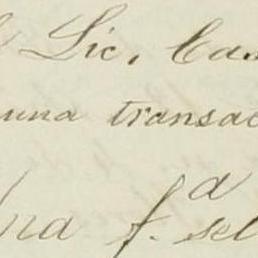 Lic. Cam
una transac
na f.a sel